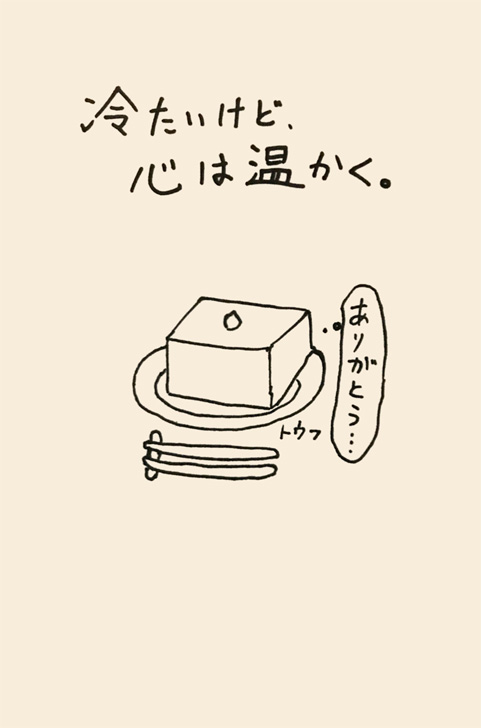 冷たいけど、
心は温かく。
ありがとう…
トウフ